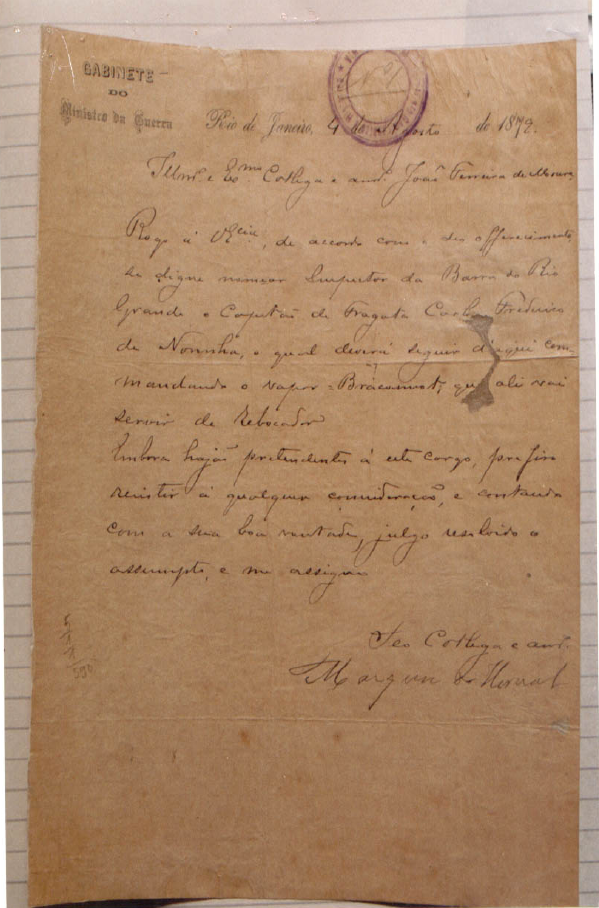 GABINETE
DO
Ministro da Guerra
Rio de Janeiro, 4 de Agosto de 1879.
Illmo. e Exmo. Collega e amo. João Ferreira de Moura
Rogo á VExcia., de accordo com o seu offerecimento,
se digne nomear Inspector da Barra do Rio
Grande o Capitão de Fragata Carlos Frederico
de Noronha, o qual deverá seguir d'aqui com-
mandando o vapor = Bracconnot, que ali vai
servir de Rebocador
Embora hajão pretendentes á este cargo, prefiro
resistir á qualquer consideração, e contando
com a sua boa vontade, julgo resolvido o
assumpto, e me assigno
Seo Collega e amo.
Marquez do Herval